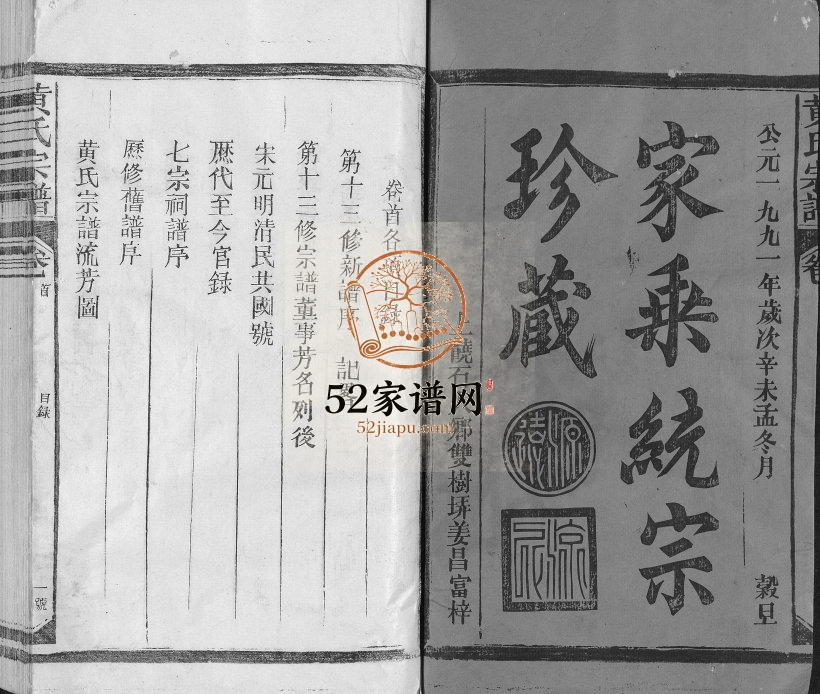 黃氏宗譜
公元一九九一年歲次辛未孟冬月 穀旦
家乘統宗
珍藏
源遠
上饒石 鄉雙樹垪姜昌富梓
卷首各 目錄
第十三修新譜序 記
第十三修宗譜董事芳名列後
宋元明清民共國號
歷代至今官錄
七宗祠譜序
歷修舊譜序
黃氏宗譜流芳圖
黃氏宗譜 卷首 目錄 一號
52家谱网
52jiapu.com